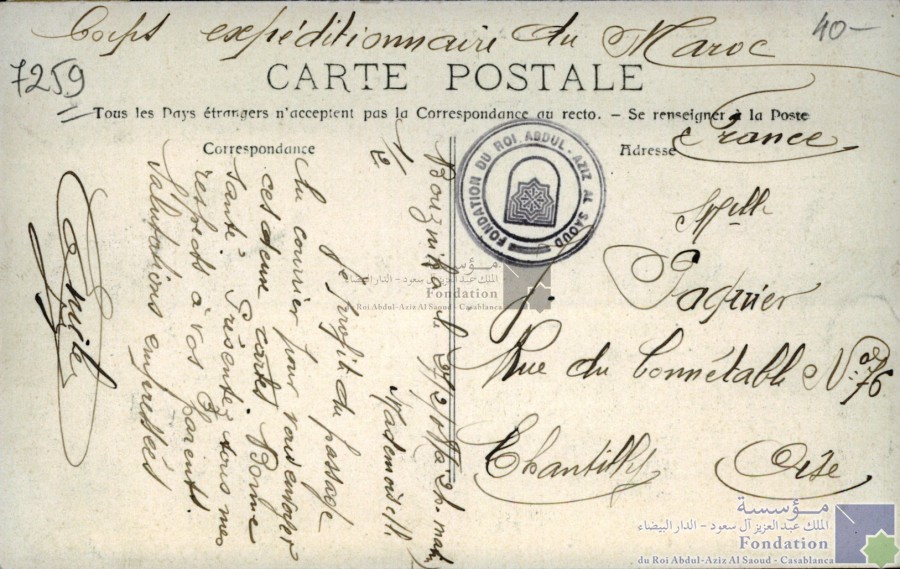 Corps expéditionnaire du Maroc
40-
7259
CARTE POSTALE
Tous les Pays étrangers n'acceptent pas la Correspondance au recto. - Se renseigner à la Poste
France
Correspondance
Adresse
1/2
Bouznika le
Mademoiselle
Je profite du passage
du courrier pour vous envoyer
ces deux cartes Bonne
santé. Présentez tous mes
respects à vos Parents.
Salutations empressées
Emile
FONDATION DU ROI ABDUL-AZIZ AL SAOUD
Melle
J. Paquier
Rue du Connétable No 76
Chantilly
Oise
مؤسسة
الملك عبد العزيز آل سعود - الدار البيضاء
Fondation
du Roi Abdul-Aziz Al Saoud - Casablanca
مؤسسة
الملك عبد العزيز آل سعود - الدار البيضاء
Fondation
du Roi Abdul-Aziz Al Saoud - Casablanca